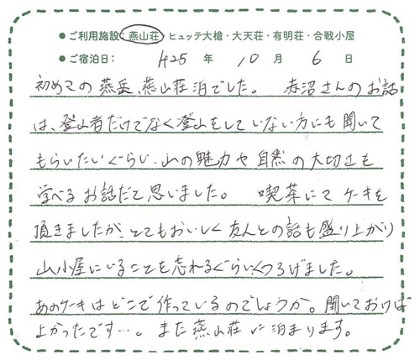 ● ご利用施設：燕山荘 ヒュッテ大槍・大天荘・有明荘・合戦小屋
● ご宿泊日： H25 年 10 月 6 日
初めての燕岳、燕山荘泊でした。 赤沼さんのお話
は、登山者だけでなく登山をしていない方にも聞いて
もらいたいぐらい、山の魅力や自然の大切さも
学べるお話だと思いました。 喫茶にてケーキを
頂きましたが、とてもおいしく友人との話も盛り上がり
山小屋にいることを忘れるぐらいくつろげました。
あのケーキはどこで作っているのでしょうか。聞いておけば
よかったです…。また燕山荘に泊まります。